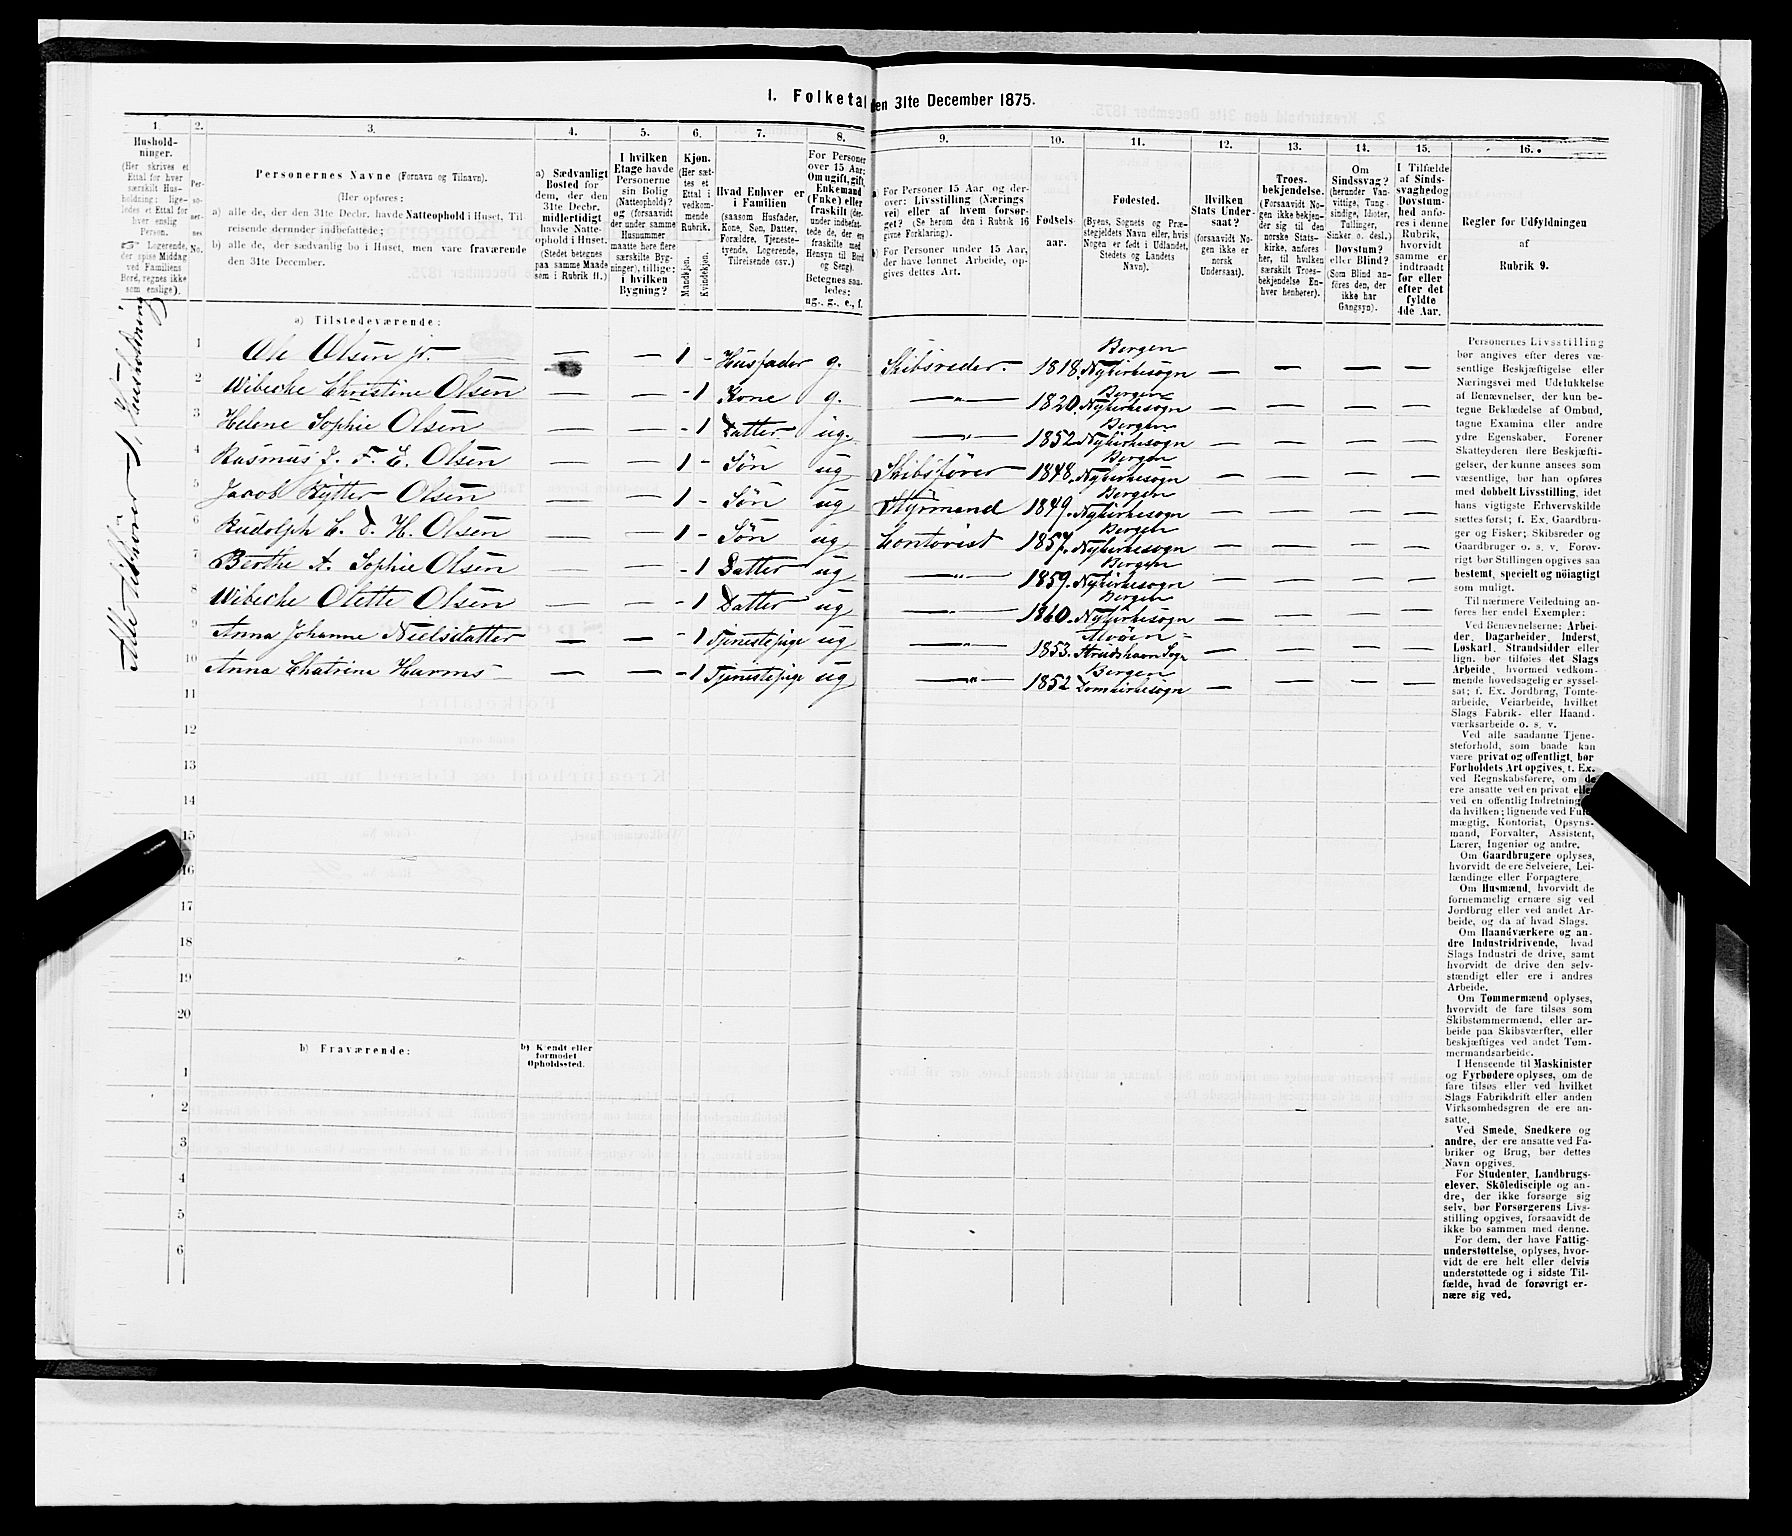 1. Folketal den 31te December 1875.
1.
Hushold-
ninger.
(Her skrives et
Ettal for hver
særskilt Hus-
holdning; lige-
ledes et Ettal for
hver enslig
Person.
☞ Logerende,
der spise Middag
ved Familiens
Bord, regnes ikke
som enslige).
2.
Per-
so-
ner-
nes
No.
3.
Personernes Navne (Fornavn og Tilnavn).
(Her opføres:
a) alle de, der den 31te Decbr. havde Natteophold i Huset, Til-
reisende derunder indbefattede;
b) alle de, der sædvanlig bo i Huset, men vare fraværende
den 31te December.
4.
a) Sædvanligt
Bosted for
dem, der den
31te Decbr.
midlertidigt
havde Natte-
ophold i Huset.
(Stedet betegnes
paa samme Maade
som i Rubrik 11.)
5.
I hvilken
Etage havde
Personerne
sin Bolig
(Natteophold)?
og (forsaavidt
der under samme
Husnummer
maatte høre flere
særskilte Byg-
ninger), tillige:
i hvilken
Bygning?
6.
Kjøn.
(Her sæt-
tes et
Ettal i
vedkom-
mende
Rubrik.
Mandkjøn.
Kvindekjøn.
7.
Hvad Enhver er
i Familien
(saasom Husfader,
Kone, Søn, Datter,
Forældre, Tjeneste-
tyende, Logerende,
Tilreisende osv.)
8.
For Personer
over 15 Aar:
Om ugift, gift,
Enkemand
(Enke) eller
fraskilt (der-
under indbefat-
tede de, der er
fraskilte med
Hensyn til Bord
og Seng).
Betegnes saa-
ledes:
ug., g., e., f.
9.
a) For Personer 15 Aar og der-
over: Livsstilling (Nærings
vei) eller af hvem forsør-
get? (Se herom den i Rubrik 16
givne Forklaring).
b) For Personer under 15 Aar,
der have lønnet Arbeide, op-
gives dettes Art.
10.
Fødsels-
aar.
11.
Fødested.
(Byens, Sognets og Præ-
stegjeldets Navn eller, hvis
Nogen er født i Udlandet,
Stedets og Landets
Navn).
12.
Hvilken
Stats Under-
saat?
(forsaavidt No-
gen ikke er
norsk
Undersaat).
13.
Troes-
bekjendelse.
(Forsaavidt No-
gen ikke bekjen-
der sig til den
norske Stats-
kirke, anføres
her, til hvilken
særskilt Troes-
bekjendelse En-
hver henhører).
14.
Om
Sindssvag?
(herunder Van-
vittige, Tung
sindige, Idioter,
Tullinger,
Sinker o. desl.)
Døvstum?
eller Blind?
(Som Blind an-
føres den, der
ikke har
Gangsyn).
15.
I Tilfælde
af Sinds-
svaghed og
Døvstum-
hed anfø-
res i denne
Rubrik,
hvorvidt
samme er
indtraadt
før eller
efter det
fyldte
4de Aar.
16.
Regler for Udfyldningen
af
Rubrik 9.
a) Tilstedeværende:
Alle tilhører 1 Husholdning
1 Ole Olsen jr. — — 1 - Husfader g. Skibsreder. 1818. Bergen Nykirkesogn — — — —
2 Wibecke Christine Olsen — — - 1 Kone g. —"— 1820. Bergen Nykirkesogn — — — —
3 Helene Sophie Olsen — — - 1 Datter ug. —"— 1852 Bergen Nykirkesogn — — — —
4 Rasmus J. F. E. Olsen — — 1 - Søn ug Skibsfører 1848. Bergen Nykirkesogn — — — —
5 Jacob Rytter Olsen — — 1 - Søn ug Styrmand 1849. Bergen Nykirkesogn — — — —
6 Rudolph E. D. H. Olsen — — 1 - Søn ug Contorist 1857. Bergen Nykirkesogn — — — —
7 Berthe A. Sophie Olsen — — - 1 Datter ug —"— 1859. Bergen Nykirkesogn — — — —
8 Wibecke Olette Olsen — — - 1 Datter ug —"— 1860. Bergen Nykirkesogn — — — —
9 Anna Johanne Nielsdatter — — - 1 Tjenestepige ug —"— 1853. Alvøen - Sogn — — — —
10 Anna Chatrine Harms — — - 1 Tjenestepige ug —"— 1852 Bergen Domkirkesogn — — — —
11
12
13
14
15
16
17
18
19
20
b) Fraværende:
b) Kjendt eller
formodet
Opholdssted.
1
2
3
4
5
6
Personernes Livsstilling
bør angives efter deres væ-
sentlige Beskjæftigelse eller
Næringsvei med Udelukkelse
af Benævnelser, der kun be-
tegne Beklædelse af Ombud,
tagne Examina eller andre
ydre Egenskaber. Forener
Skatteyderen flere Beskjæfti-
gelser, der kunne ansees som
væsentlige, bør han opføres
med dobbelt Livsstilling, idet
hans vigtigste Erhvervskilde
sættes først; f. Ex. Gaardbru-
ger og Fisker; Skibsreder og
Gaardbruger o. s. v. Forøv-
rigt bør Stillingen opgives saa
bestemt, specielt og nöiagtigt
som muligt.
Til nærmere Veiledning an-
føres her endel Exempler:
Ved Benævnelserne: Arbei-
der, Dagarbeider, Inderst,
Løskarl, Strandsidder eller
lign. bør tilføies det Slags
Arbeide, hvormed vedkom-
mende hovedsagelig er syssel-
sat; f. Ex. Jordbrug, Tomte-
arbeide, Veiarbeide, hvilket
Slags Fabrik- eller Haand-
værksarbeide o. s. v.
Ved alle saadanne Tjene-
steforhold, som baade kan
være privat og offentligt, bør
Forholdets Art opgives, t. Ex.
ved Regnskabsførere, om de
ere ansatte ved en privat eller
ved en offentlig Indretning
da hvilken; lignende ved Fuld-
mægtig, Kontorist, Opsyns-
mand, Forvalter, Assistent,
Lærer, Ingeniør og andre.
Om Gaardbrugere oplyses,
hvorvidt de ere Selveiere, Lei-
lændinge eller Forpagtere.
Om Husmænd, hvorvidt de
fornemmelig ernære sig ved
Jordbrug eller ved andet Ar-
beide, og da af hvad Slags.
Om Haandværkere og an-
dre Industridrivende, hvad
Slags Industri de drive, samt
hvorvidt de drive den selv-
stændigt eller ere i andres
Arbeide.
Om Tømmermænd oplyses,
hvorvidt de fare tilsøs som
Skibstømmermænd, eller ar-
beide paa Skibsværfter, eller
beskjæftiges ved andet Tøm-
mermandsarbeide.
I Henseende til Maskinister
og Fyrbødere oplyses, om de
fare tilsøs eller ved hvilket
Slags Fabrikdrift eller anden
Virksomhedsgren de ere an-
satte.
Ved Smede, Snedkere og
andre, der ere ansatte ved Fa-
briker og Brug, bør dettes
Navn opgives.
For Studenter, Landbrugs-
elever, Skoledisciple og an-
dre, der ikke forsørge sig
selv, bør Forsørgerens Livs-
stilling opgives, forsaavidt de
ikke bo sammen med denne.
For dem, der have Fattig-
understøttelse, oplyses, hvor-
vidt de ere helt eller delvis
understøttede og i sidste Til-
fælde, hvad de forøvrigt er-
nære sig ved.